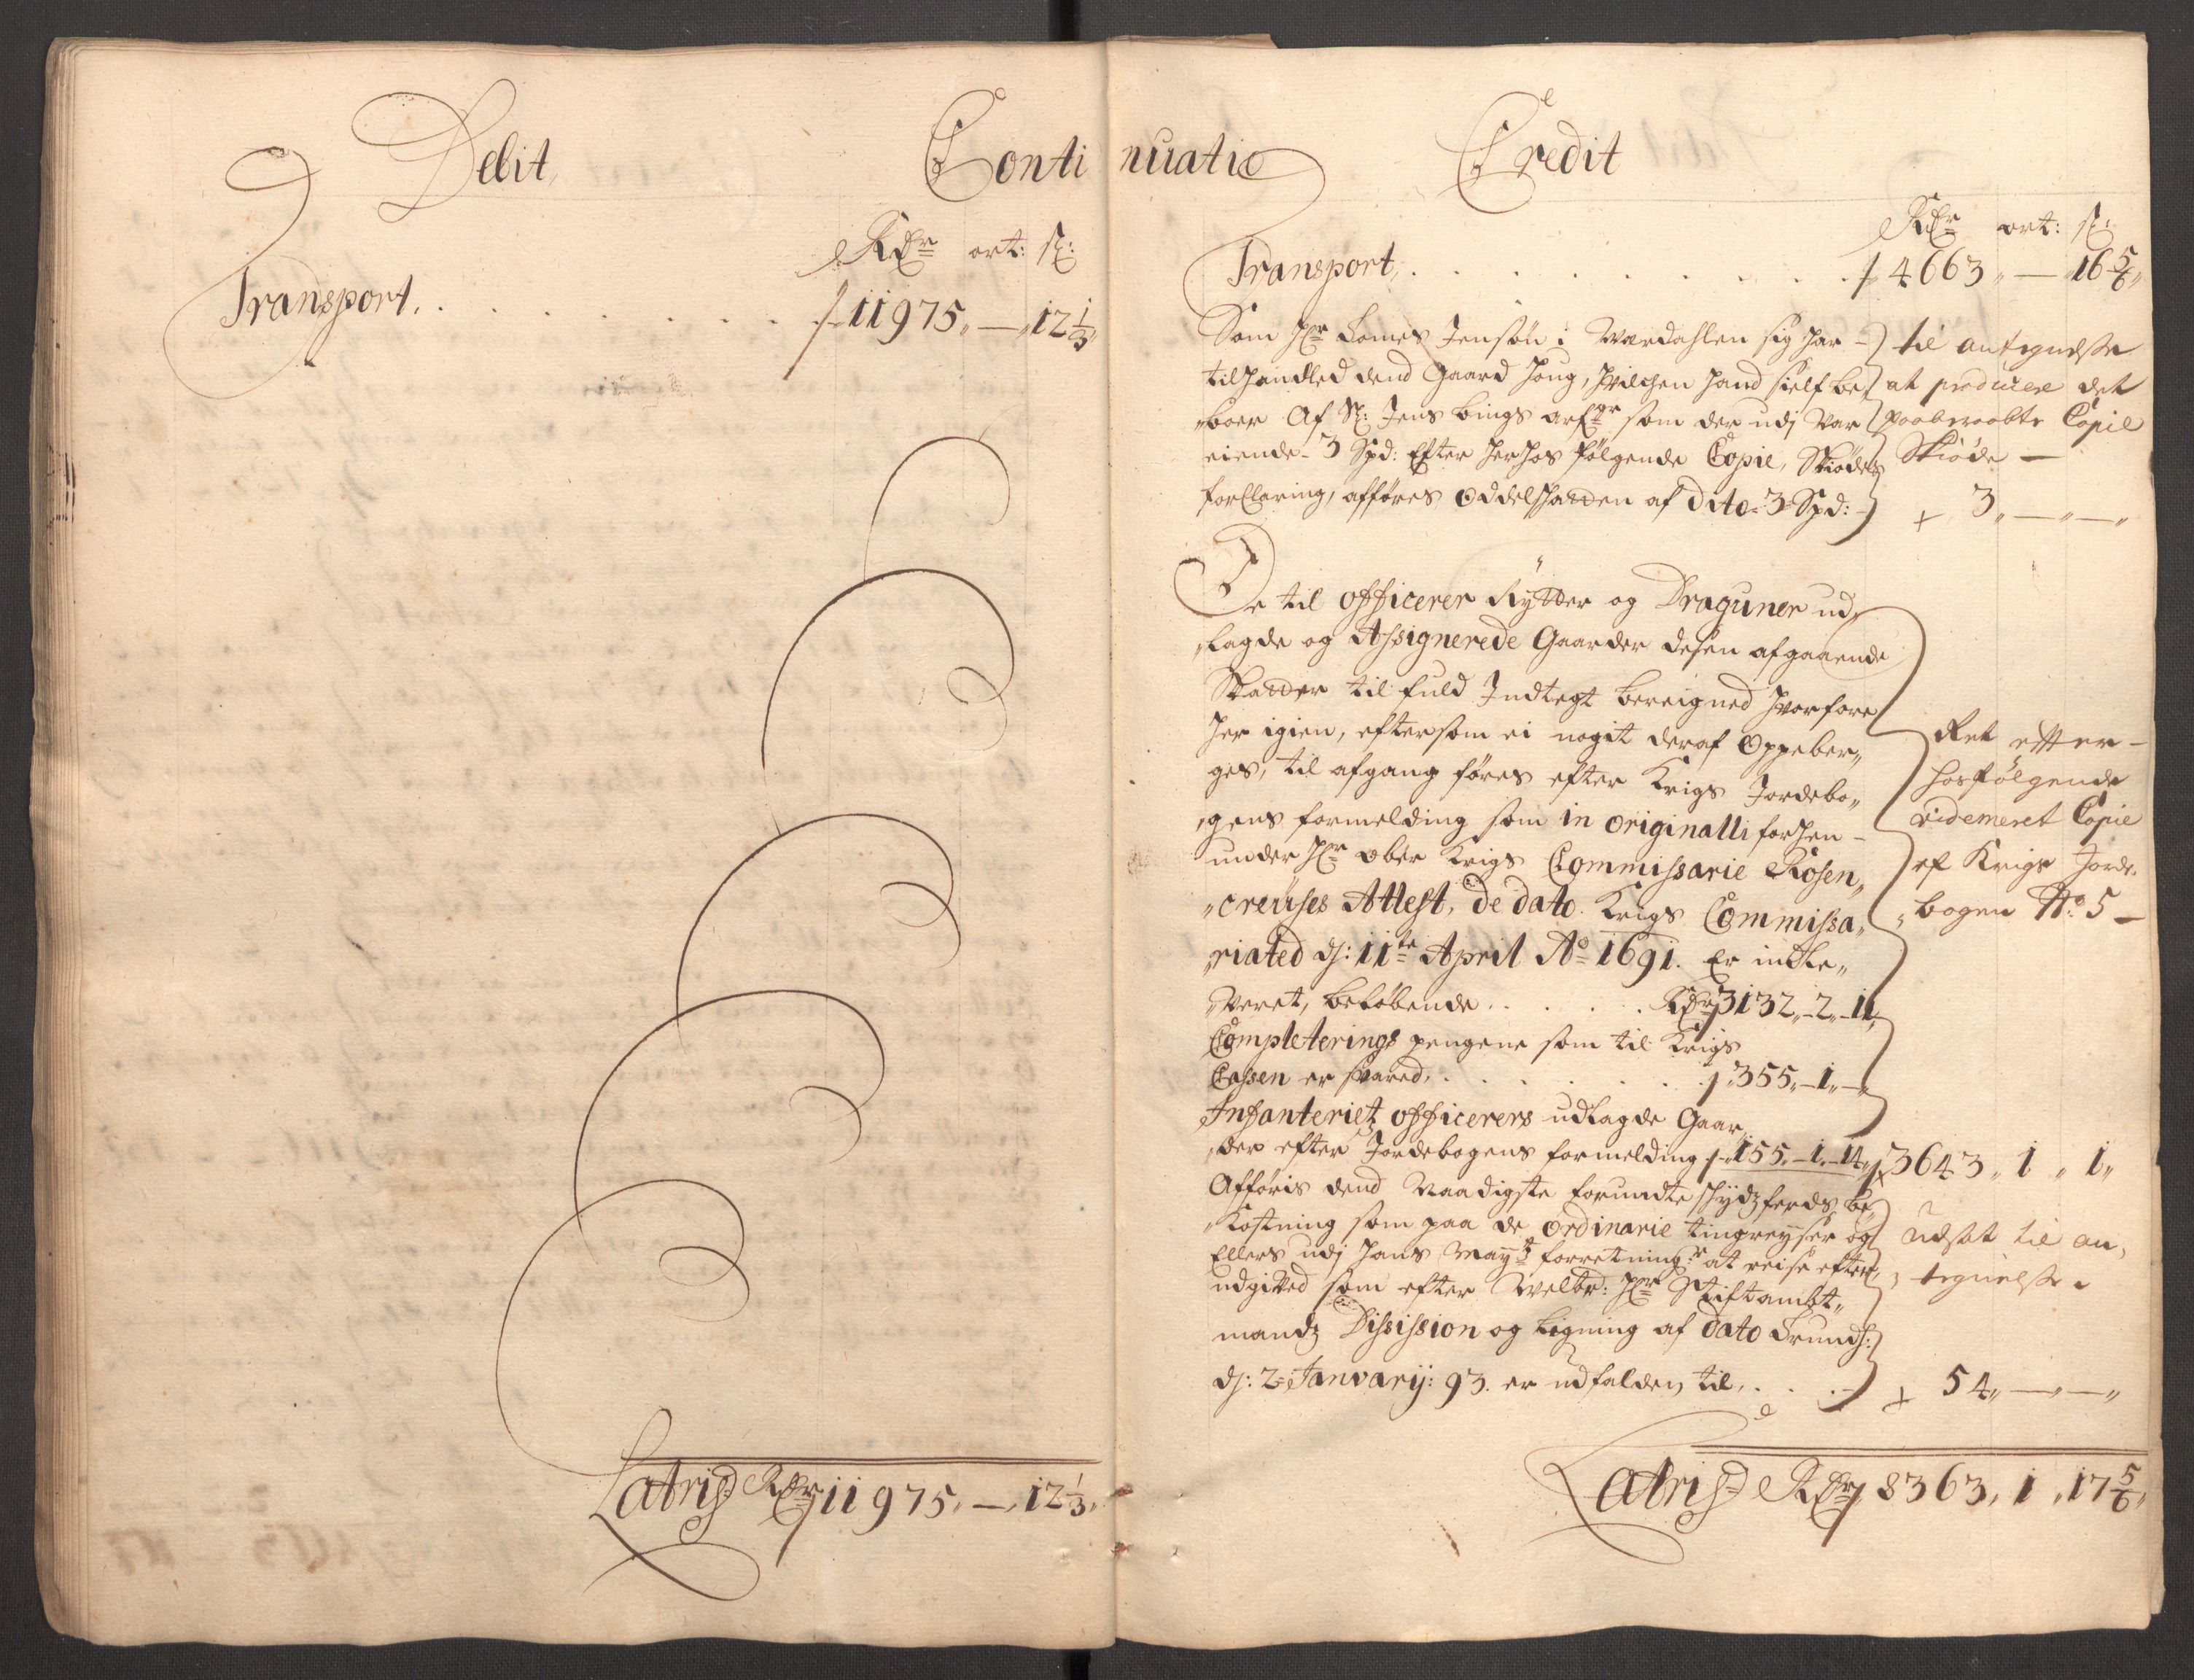 Debit
Continuatio
Credit
Rdr ort: s:
Transport . . . . . . . . 11975 „ — „ 12 1/3 „
Latris Rdr 11975 „ — „ 12 1/3 „
Rdr ort: s:
Transport . . . . . . . . 4663 „ — „ 16 5/6 „
Som Hr Lomes Jensøn i Werdahlen sig har
tilhandled dend Gaard Houg, hvilchen hand sielf be„
„boer Af S: Jens Bings som der udj var
eiende 3 Spd: Efter herhos følgende Copie, Skiødes
forClaring, afføres Oddelschatten af dito 3 Spd:
til antegnelse
at producere det
paaberaabte Copie
Skiøde —
3 „ — „ — „
De til officerer Rytter og Draguner ud„
„lagde og Assignerede Gaarder desen afgaaende
Skatter til fuld Indtegt bereigned hvorfore
her igien, eftersom ei nogit deraf Oppeber„
ges, til afgang føres efter Krigs Jordebo„
„gens formelding som in originalli forhen
under Hr ober Krigs Commissarie Rosen„
„creutses Attest, de dato Krigs Commissa„
„riated dj: 11te April Ao 1691. Er indle„
„veret, beløbende . . . . Rdr 3132 „ 2 „ 11 „
Completerings pengene som til Krigs
Cassen er svared, . . . . . . 355 „ 1 „ — „
Infanteriets officerers udlagde Gaar„
„der efter Jordebogens formelding 155 „ 1 „ 14 „ 3643 „ 1 „ 1 „
Ret efter
hosfølgende
videmeret Copie
af Krigs Jorde„
„bogen No 5 —
Afføris dend Naadigste forundte schydzferds be„
„kostning som paa de ordinarie tingreyser og
Ellers udj Hans Mayts forretninger at reise efter,
udgived som efter Welbr: Hr Stiftambt„
mands Dissision og ligning af dato Trundh:
dj: 2 Janvarij: 93. er udfalden til, . . .
udsat til an„
„tegnelse
54 „ — „ — „
Latris Rdr 8363 „ 1 „ 17 5/6 „